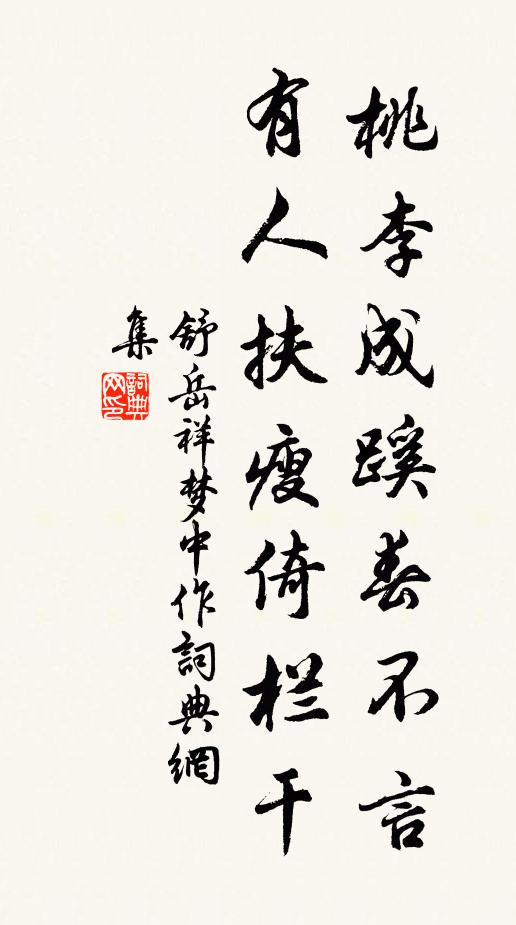 桃李成蹊春不言
有人扶瘦倚栏干
舒岳祥梦中作詞典網
集
詞典
网印